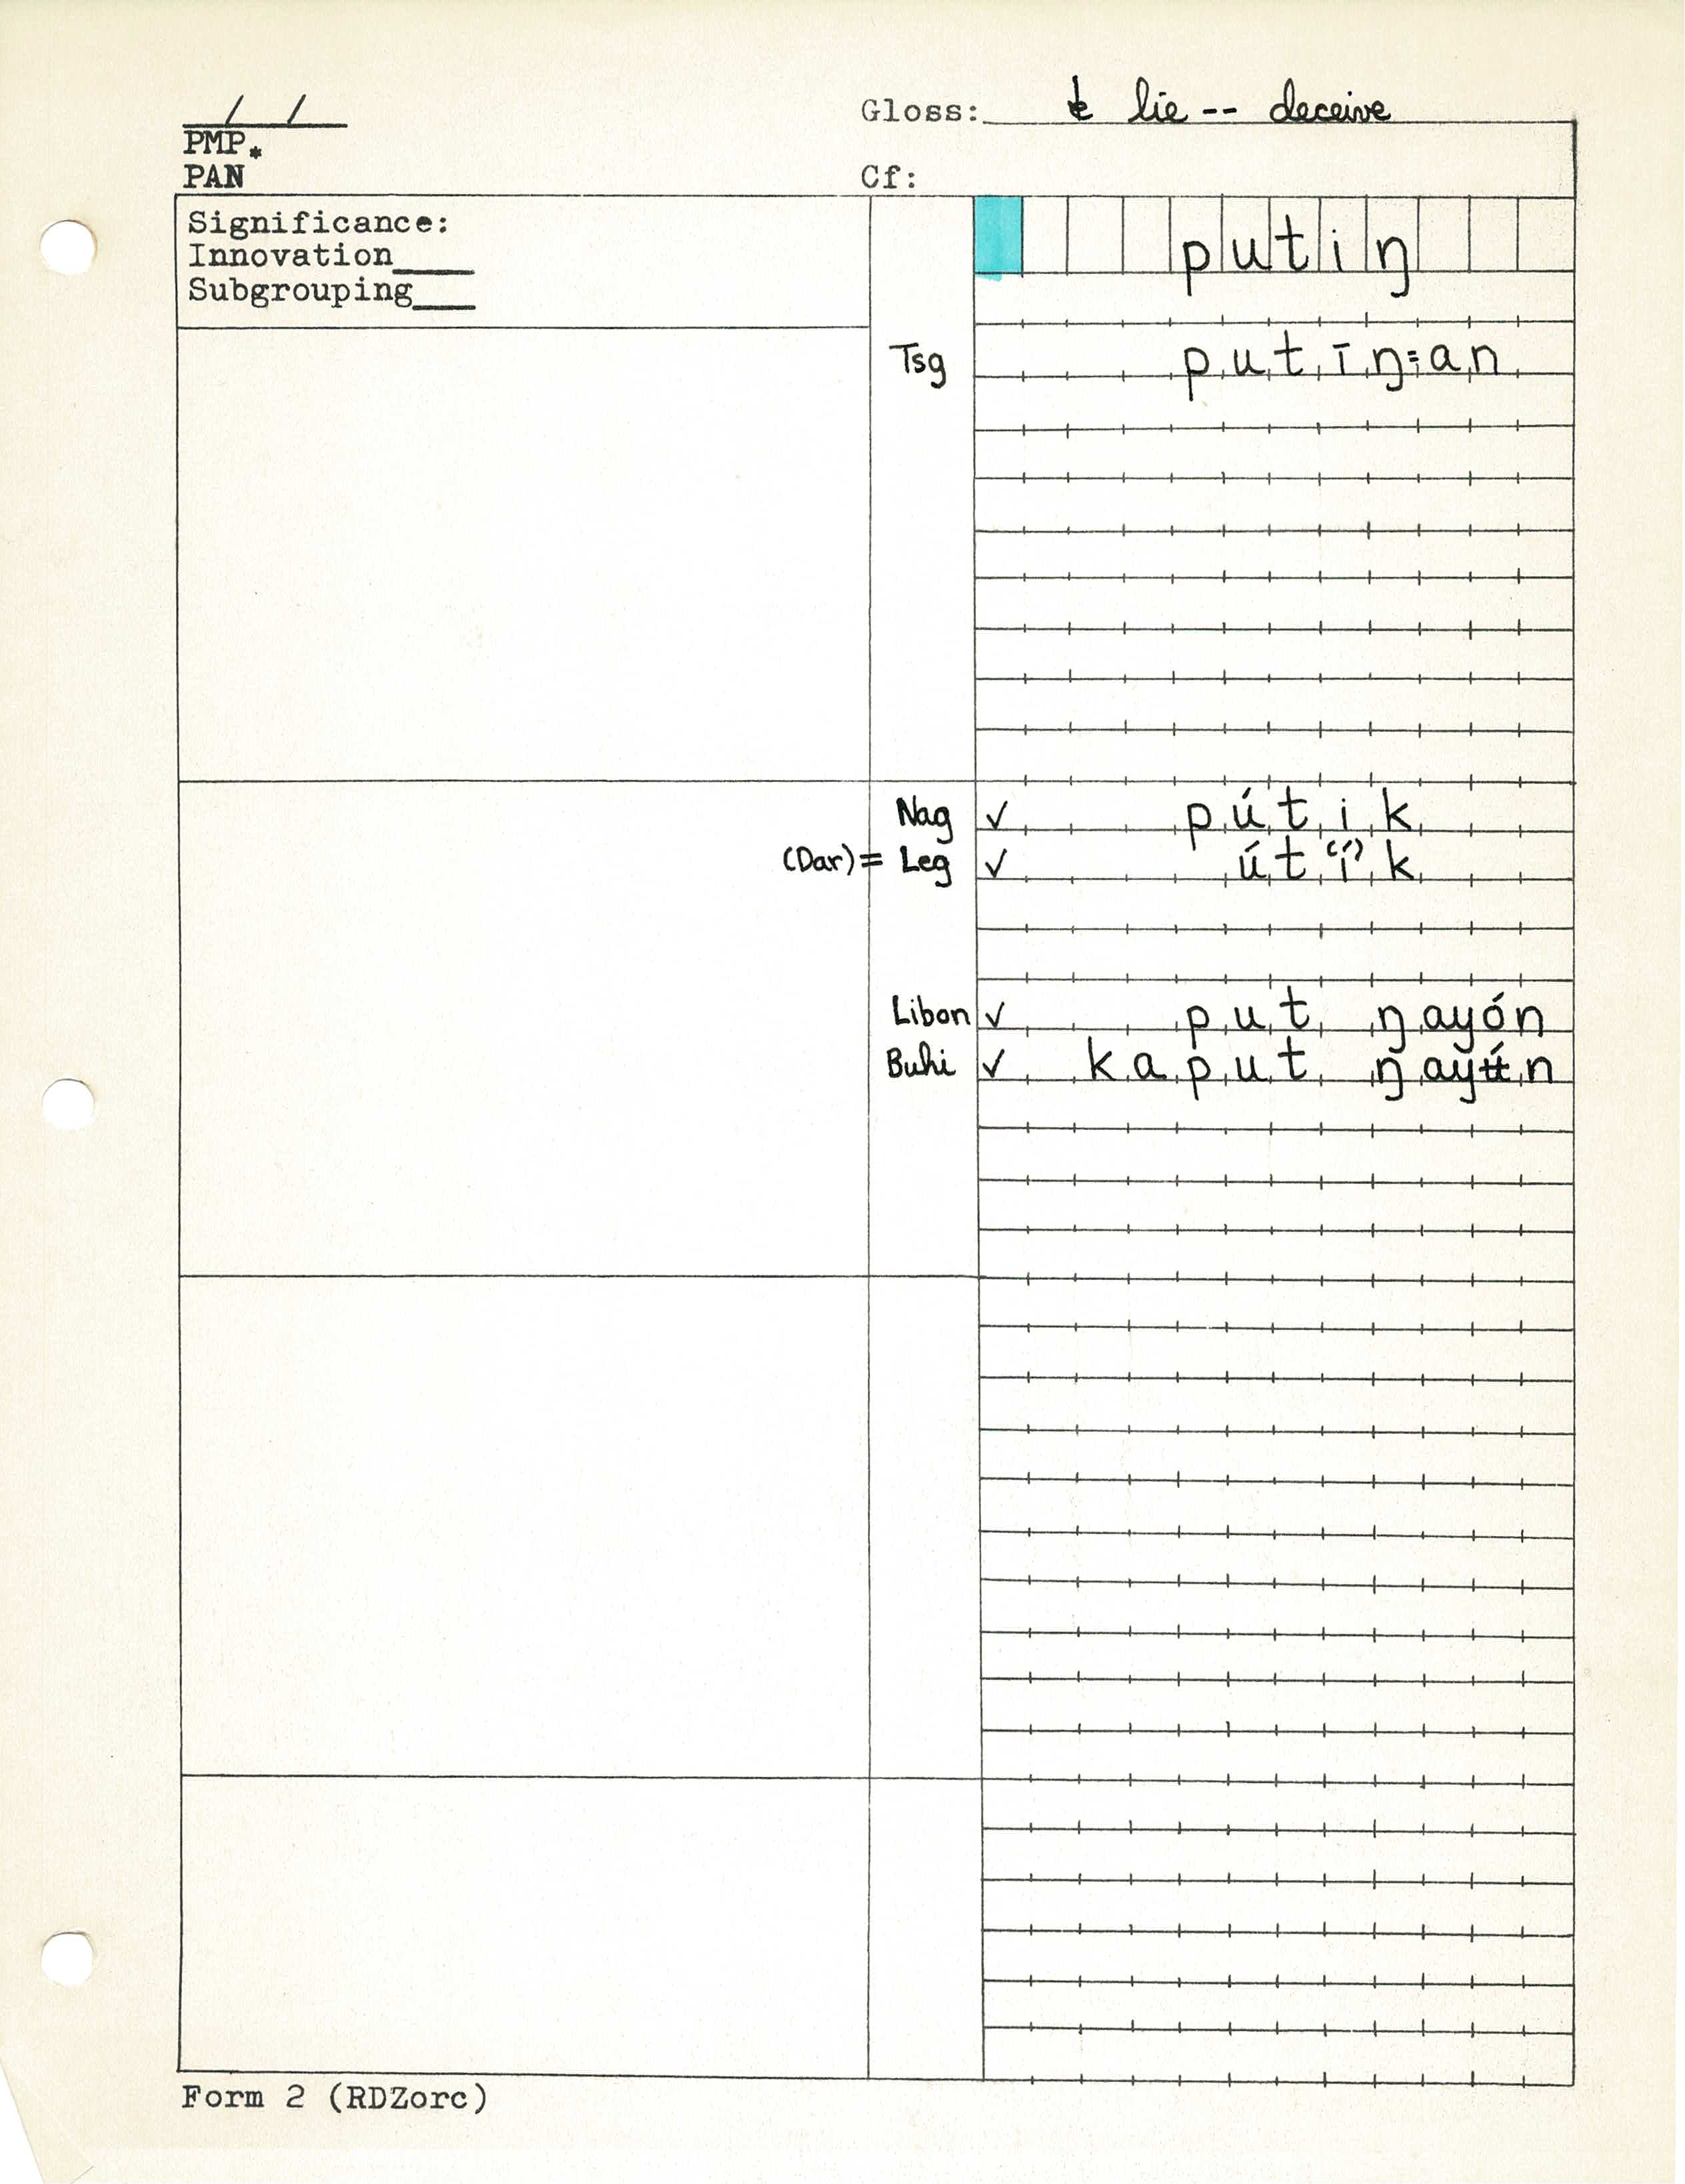 / /
Gloss: to lie -- deceive
PMP*
PAN
Cf:
Significance:
Innovation____
Subgrouping____
putiŋ
Tsg putīŋ=an
Nag ✓ pútik
(Dar) = Leg ✓ út(í)k
Libon ✓ put ŋayón
Buhi ✓ kaput ŋayʉ́n
Form 2 (RDZorc)